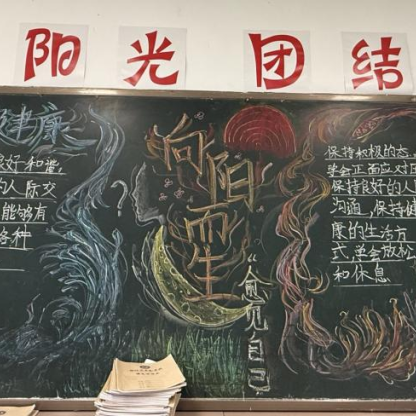 阳光团结
健康
良好和谐,
的人际交
能够有
各种
向阳而生
“愈见自己
保持积极的态
学会正面应对
保持良好的人
沟通,保持健
康的生活方
式,学会放松
和休息